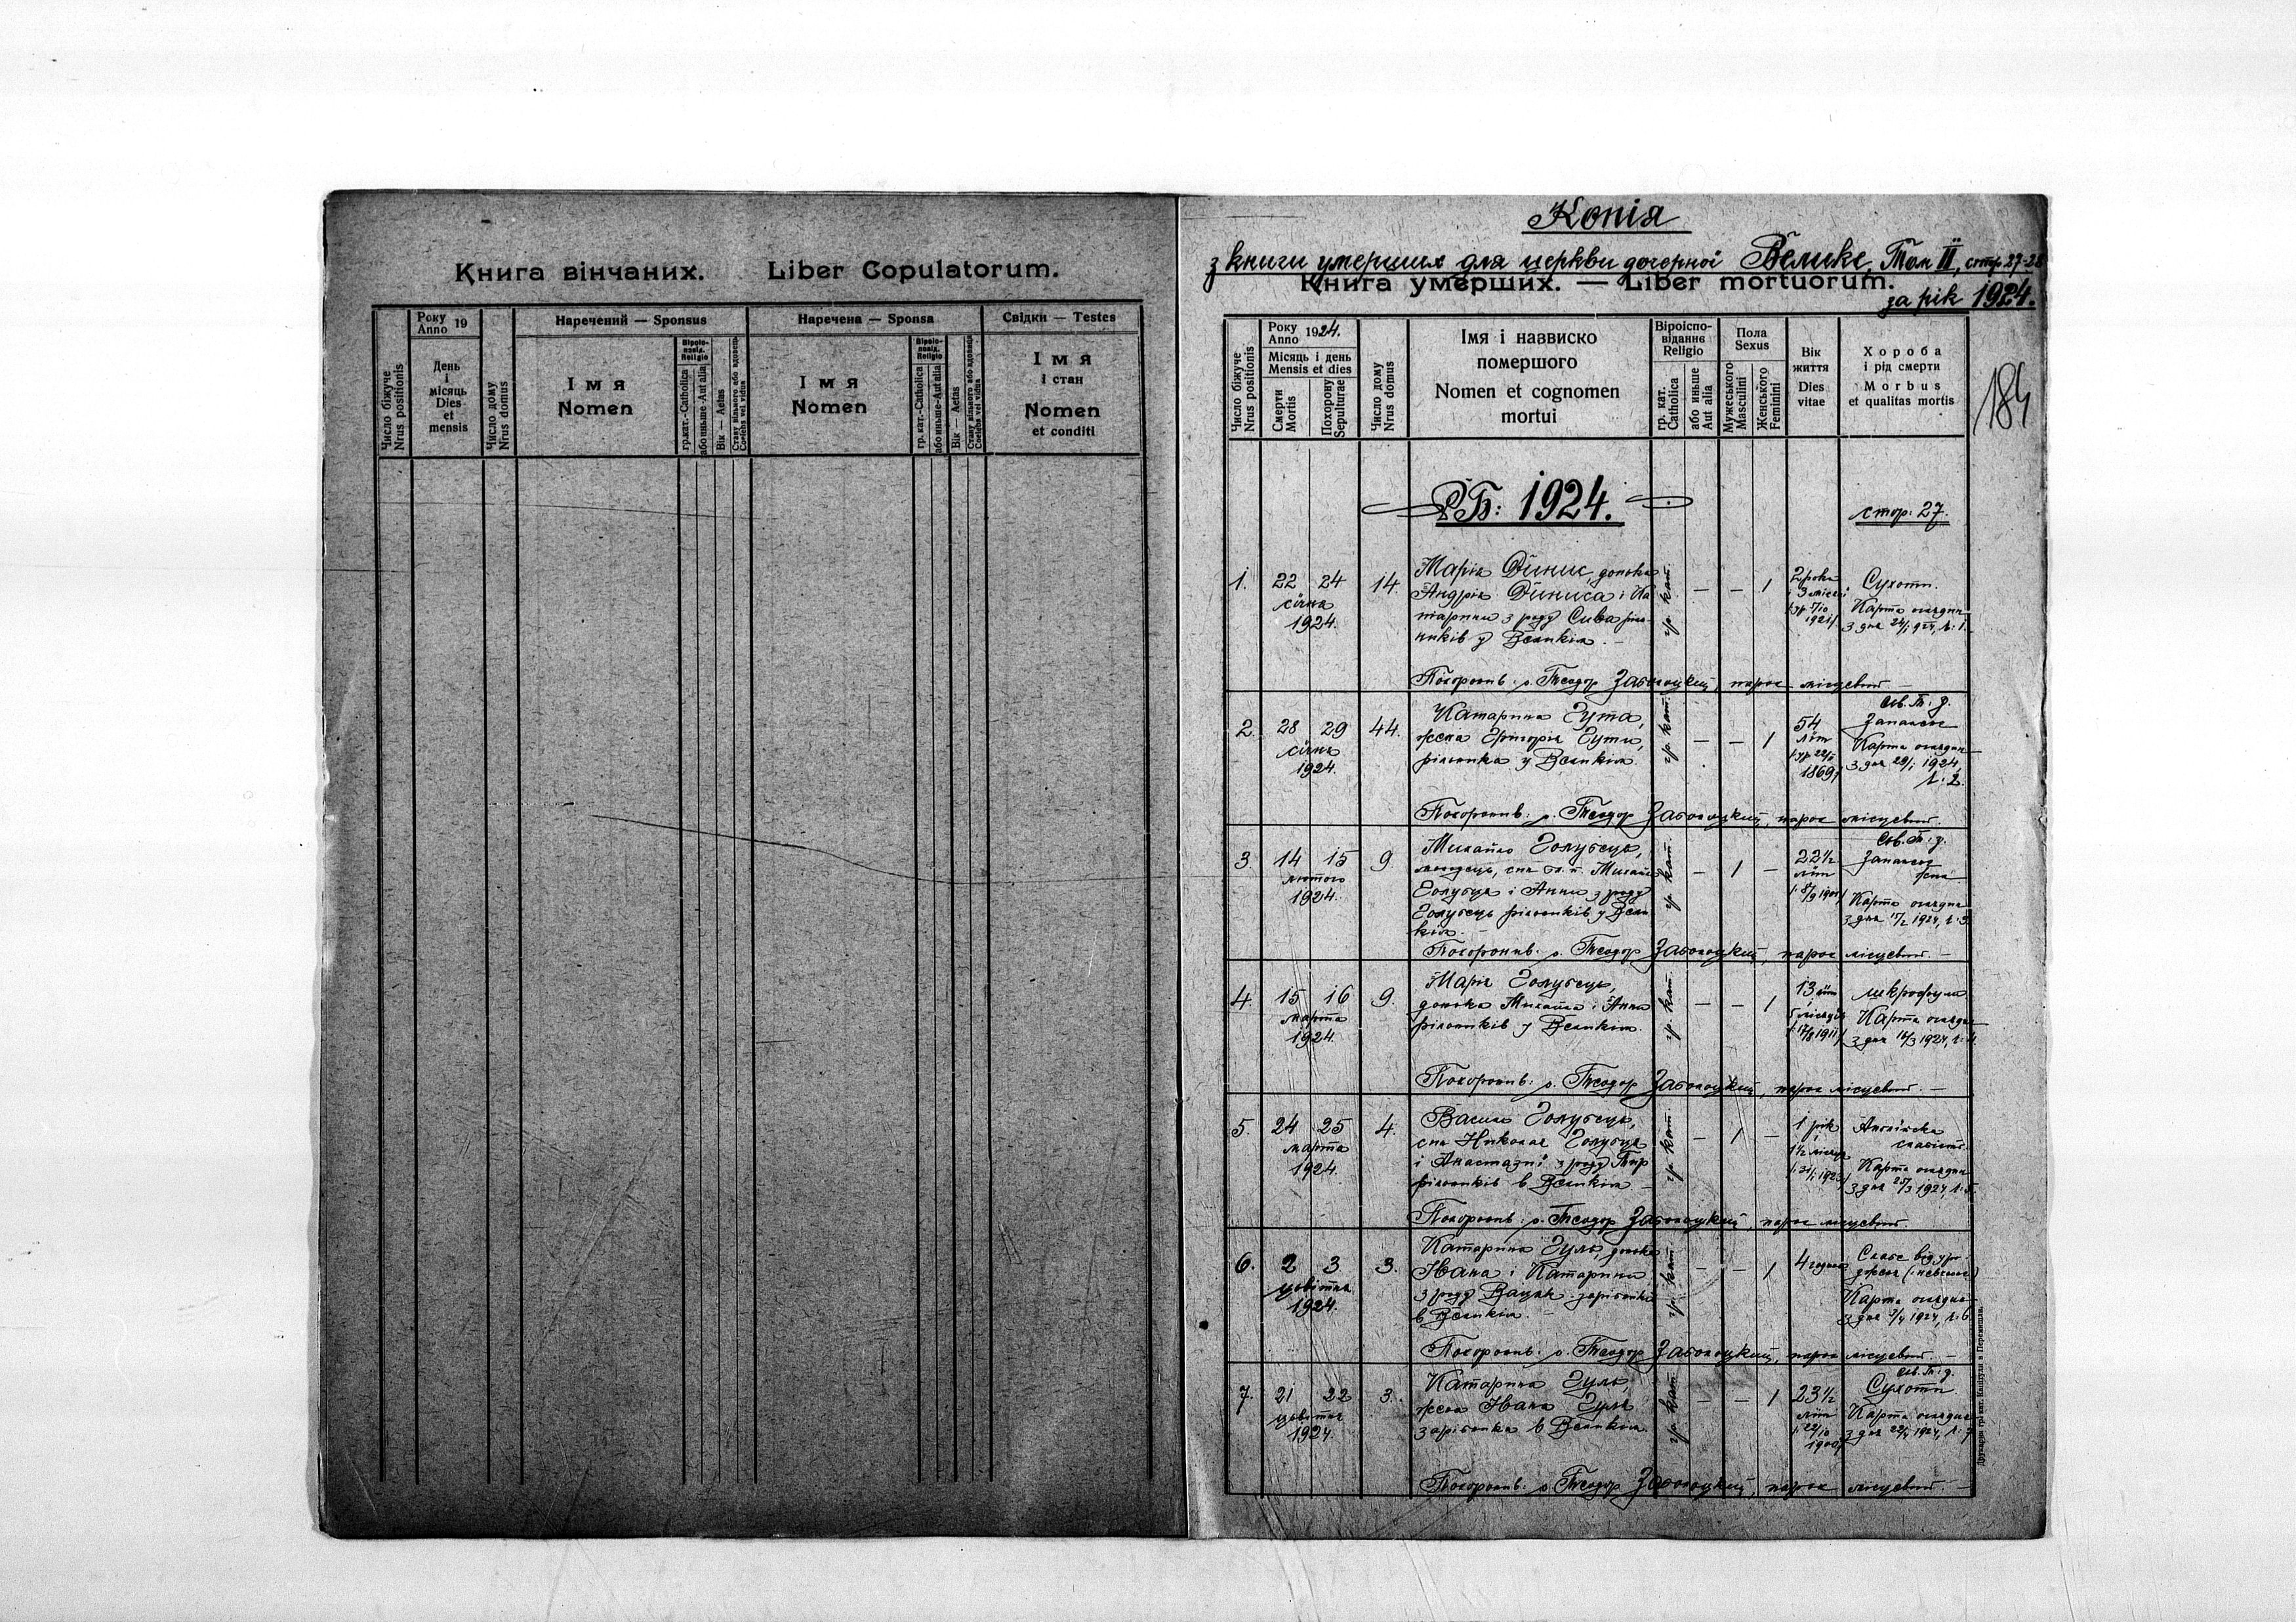 Книга вінчаних. Liber Copulatorum.
Число біжуче
Nrus positionis
Року
Anno 19
День
і
місяць
Dies
et
mensis
Число дому
Nrus domus
Наречений — Sponsus
Імя
Nomen
Віроіс-
повід.
Religio
гр. кат.-Catholica
або иньше-Aut alia
Вік — Aetas
Стану вільного або вдовець
Coelebs vel viduus
Наречена — Sponsa
Імя
Nomen
Віроіс-
повід.
Religio
гр. кат.-Catholica
або иньше-Aut alia
Вік — Aetas
Свідки — Testes
Імя
і стан
Nomen
et conditi
Копія
з книги умерших для церкви дочерної Велике, Том II, стр. 27-28
Книга умерших. — Liber mortuorum.
за рік 1924.
184
Число біжуче
Nrus positionis
Року
Anno 1924.
Місяць і день
Mensis et dies
Смерти
Mortis
Похорону
Sepulturae
Число дому
Nrus domus
Імя і назвиско
помершого
Nomen et cognomen
mortui
Віроіспо-
віданнє
Religio
гр. кат.
Catholica
або иньше
Aut alia
Пола
Sexus
Мужеського
Masculini
Женського
Feminini
Вік
життя
Dies
vitae
Хороба
і рід смерти
Morbus
et qualitas mortis
Р.Б: 1924.
стор: 27.
1. 22 24 14. Марія Динис, донька гр. кат. — — 1 2 роки Сухоти.
січня Андрія Диниса і Ка
1924. тарини з роду Сива ріль-
ників у Великім. —
Карта оглядин
з дня 24/1 924, ч: 1.
Похоронив: о. Теодор Заболоцкий, парох місцевий. —
2. 28 29 44. Катарина Гута, гр. кат. — — 1 54 Осв. Т. д.
січня жена Григорія Гути, літ Запалення
1924. рільника у Великім. 1869
Карта оглядин
з дня 29/1 1924,
ч: 2.
Похоронив: о. Теодор Заболоцкий, парох місцевий.
3. 14 15 9 Михайло Голубець, гр. кат. — 1 — 22 1/2 Осв. Т. д.
лютого молодець, син Михайла літ Запалення
1924. Голубця і Анни з роду
Голубець рільників у Вели
кім. —
Карта оглядин
з дня 15/2 1924, ч: 3.
Похоронив: о. Теодор Заболоцкий, парох місцевий. —
4. 15 16 9. Марія Голубець, гр. кат. — — 1 13 літ
марта донька Михайла і Анни
1924. рільників у Великім.
Карта оглядин
з дня 16/3 1924, ч: 4.
Похоронив: о. Теодор Заболоцкий, парох місцевий. —
5. 24 25 4. Василь Голубець, гр. кат. — 1 — 1 рік Англійска
марта син Николая Голубця слабість
1924. і Анастазиї з роду Тир
рільників в Великім. —
Карта оглядин
з дня 25/3 1924, ч: 5.
Похоронив: о. Теодор Заболоцкий, парох місцевий.
6. 2 3 3. Катарина Гуль, донька гр. кат. — — 1 4 години Слабе від уро-
цьвітня Івана і Катарини дження
1924. з роду Вацик зарібника
в Великім. —
Карта оглядин
з дня 3/4 1924, ч: 6.
Похоронив: о. Теодор Заболоцкий, парох місцевий. —
7. 21 22 3. Катарина Гуль, гр. кат. — — 1 23 1/2 Осв. Т. д.
цьвітня жена Івана Гуля літ Сухоти
1924. зарібника в Великім. 1900
Карта оглядин
з дня 22/4 1924, ч: 7
Похоронив: о. Теодор Заболоцкий, парох місцевий. —
Друкарня гр. кат. Капітули в Перемишли.